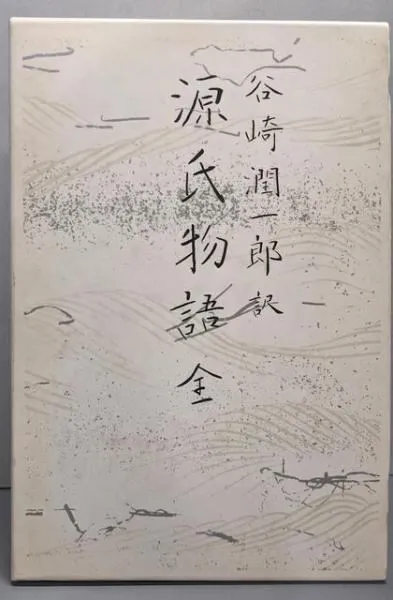 谷崎潤一郎訳
源氏物語 全